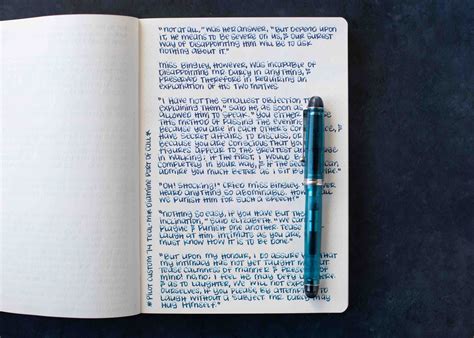 "Not at all," was her answer, "But depend upon
it, he means to be severe on us, & our surest
way of disappointing him will be to ask
nothing about it."
Miss Bingley, however, was incapable of
disappointing Mr Darcy in anything, &
preserved therefore in requiring an
explanation of his two motives.
"I have not the smallest objection to
explaining them," said he, as soon as
allowed him to speak. "You either
this method of passing the evening
because you are in each other's &
have secret affairs to discuss, or
because you are conscious that your
figures appear to the greatest
in walking; if the first, I would be
completely in your way, & if the
admire you much better as I sit by
"Oh! Shocking!" cried Miss Bingley.
heard anything so abominable. How
we punish him for such a speech?"
"Nothing so easy, if you have but the
inclination," said Elizabeth. "We can
plague & punish one another. Tease
laugh at him. Intimate as you are,
must know how it is to be done."
"But upon my honour, I do assure
my intimacy has not yet taught me
Tease calmness of manner & presence of
mind! No, no, I feel he may defy us
& as to laughter, we will not expose
ourselves, if you please, by attempting to
laugh without a subject. Mr Darcy may
hug himself."
*Pilot Custom 74 Teal-MN Diamine Port of Call*